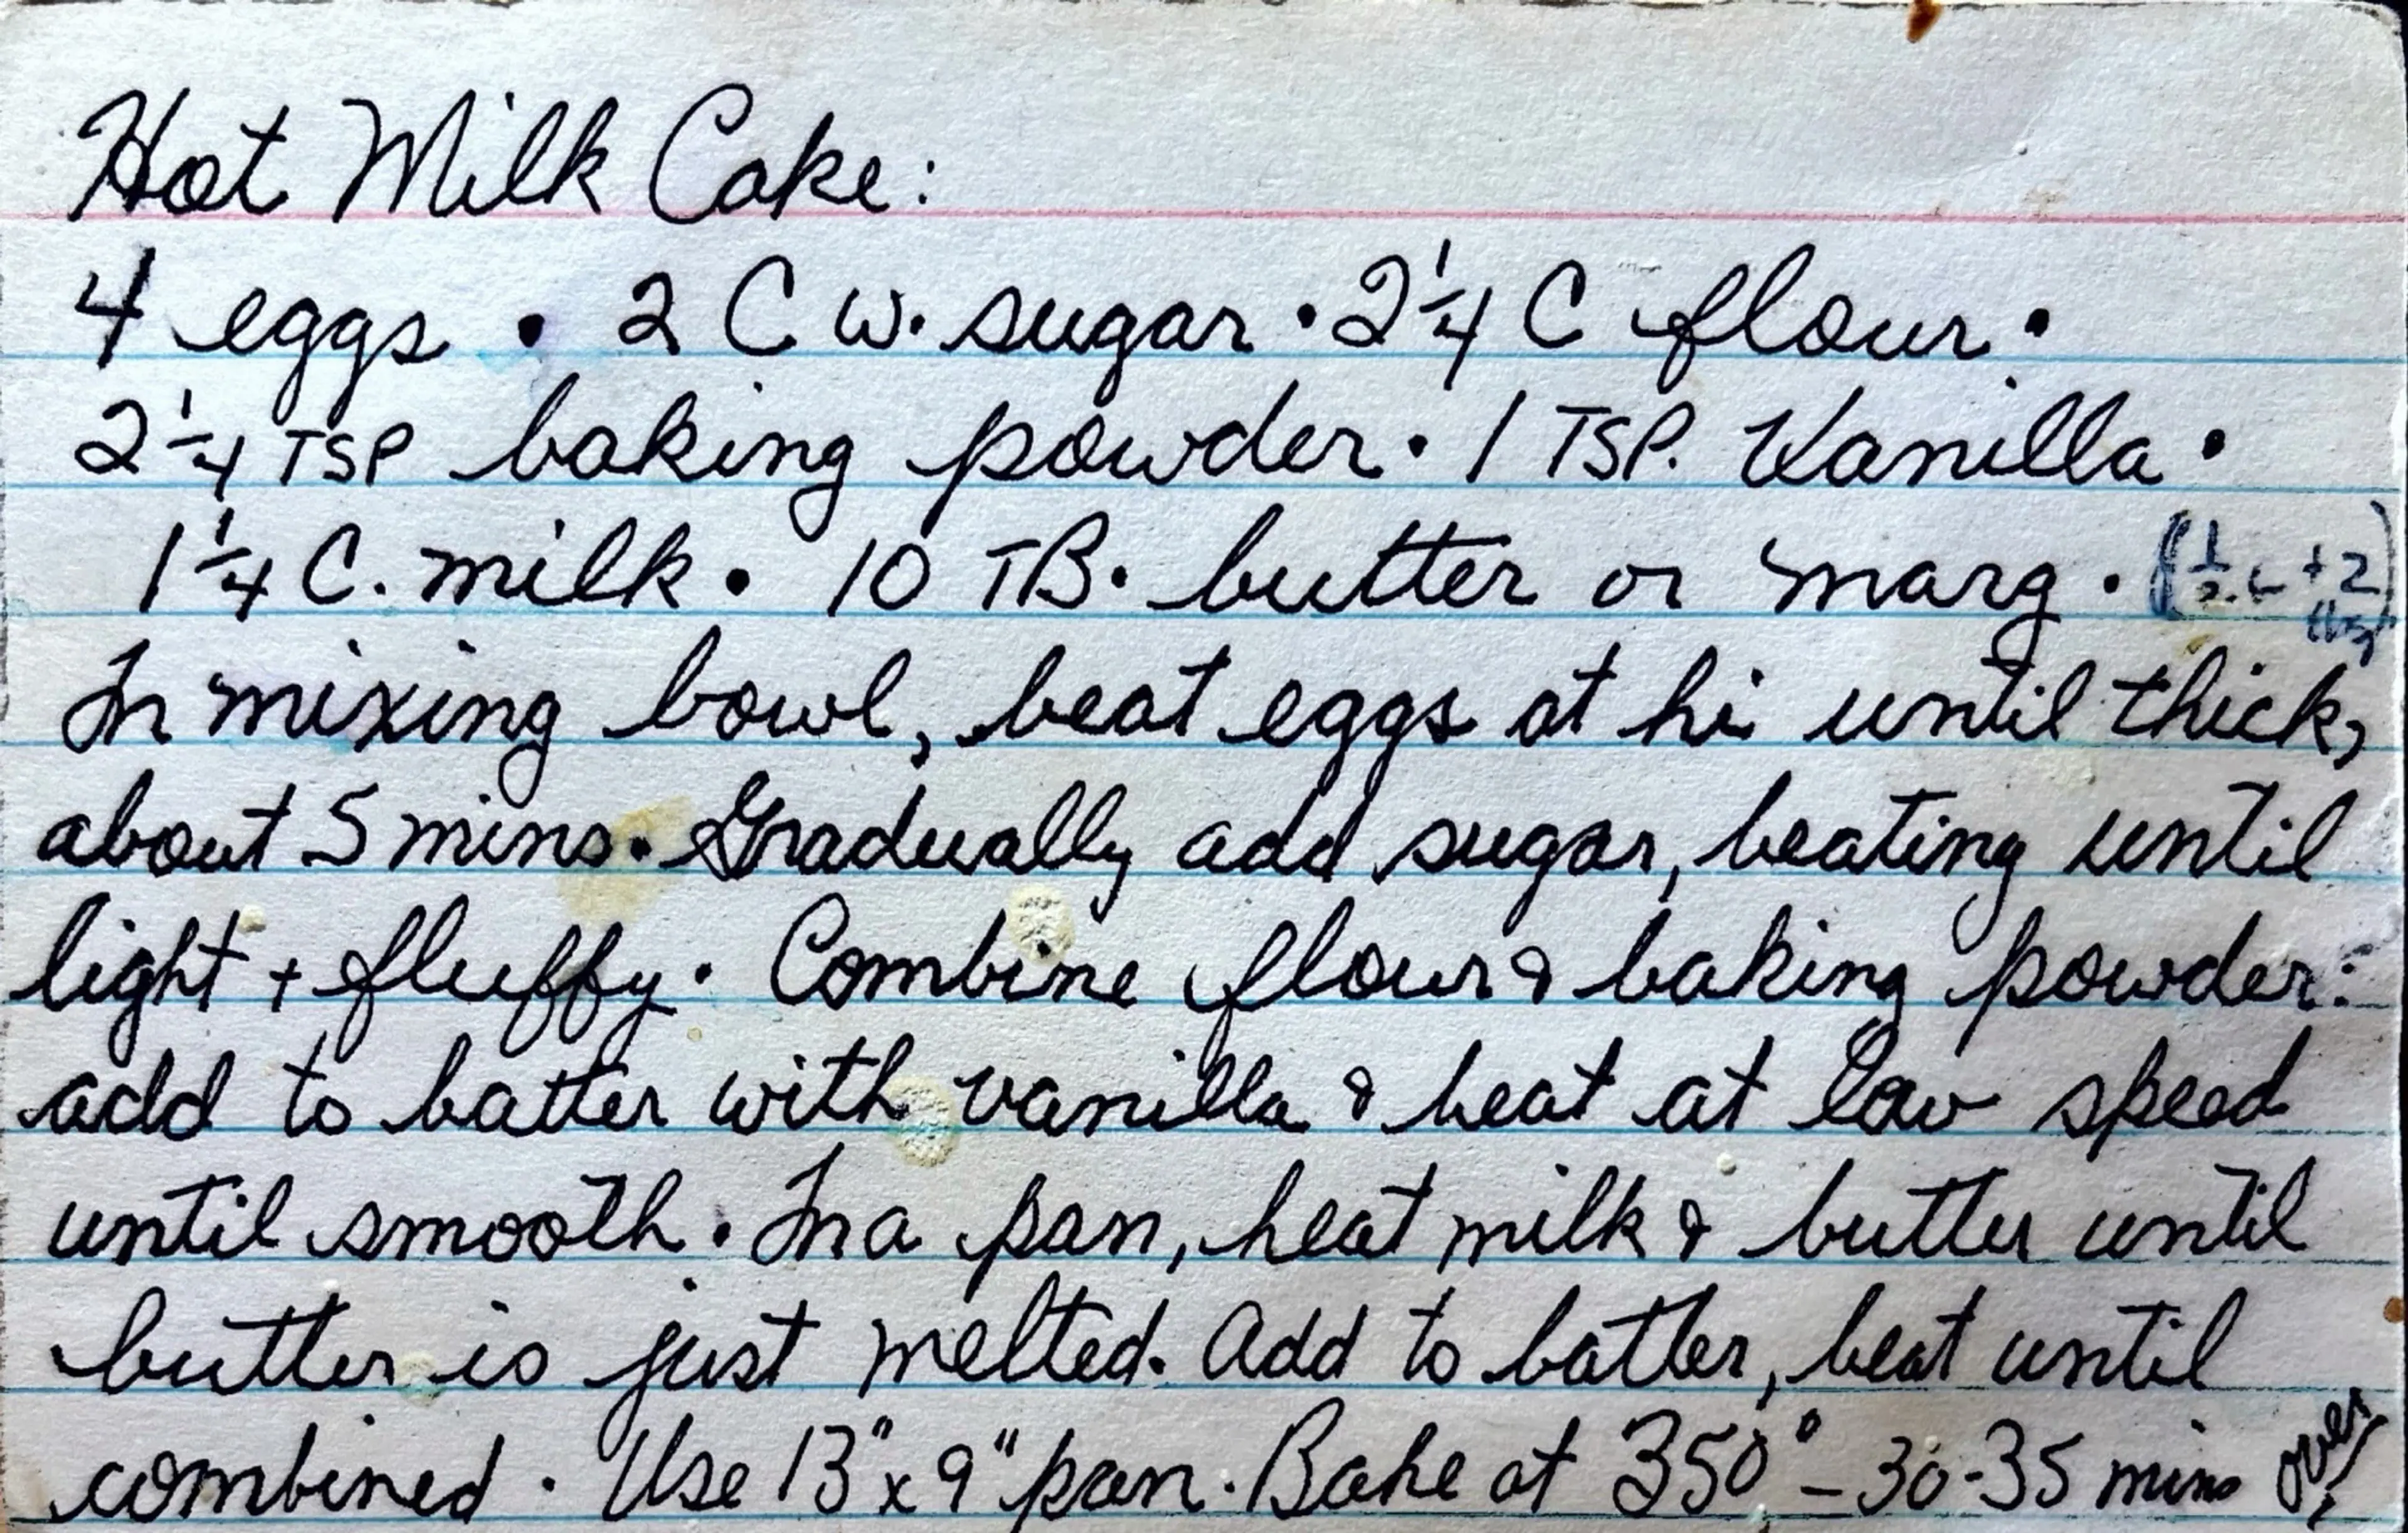 Hot Milk Cake:
4 eggs • 2 C w. sugar • 2 1/4 C flour •
2 1/4 TSP baking powder • 1 TSP. Vanilla •
1 1/4 C. milk • 10 TB. butter or marg. (1/2 c + 2
In mixing bowl, beat eggs at hi until thick,
about 5 mins. Gradually add sugar, beating until
light + fluffy. Combine flour & baking powder:
add to batter with vanilla & beat at low speed
until smooth. In a pan, heat milk & butter until
butter is just melted. Add to batter, beat until
combined. Use 13" x 9" pan. Bake at 350° - 30-35 mins over